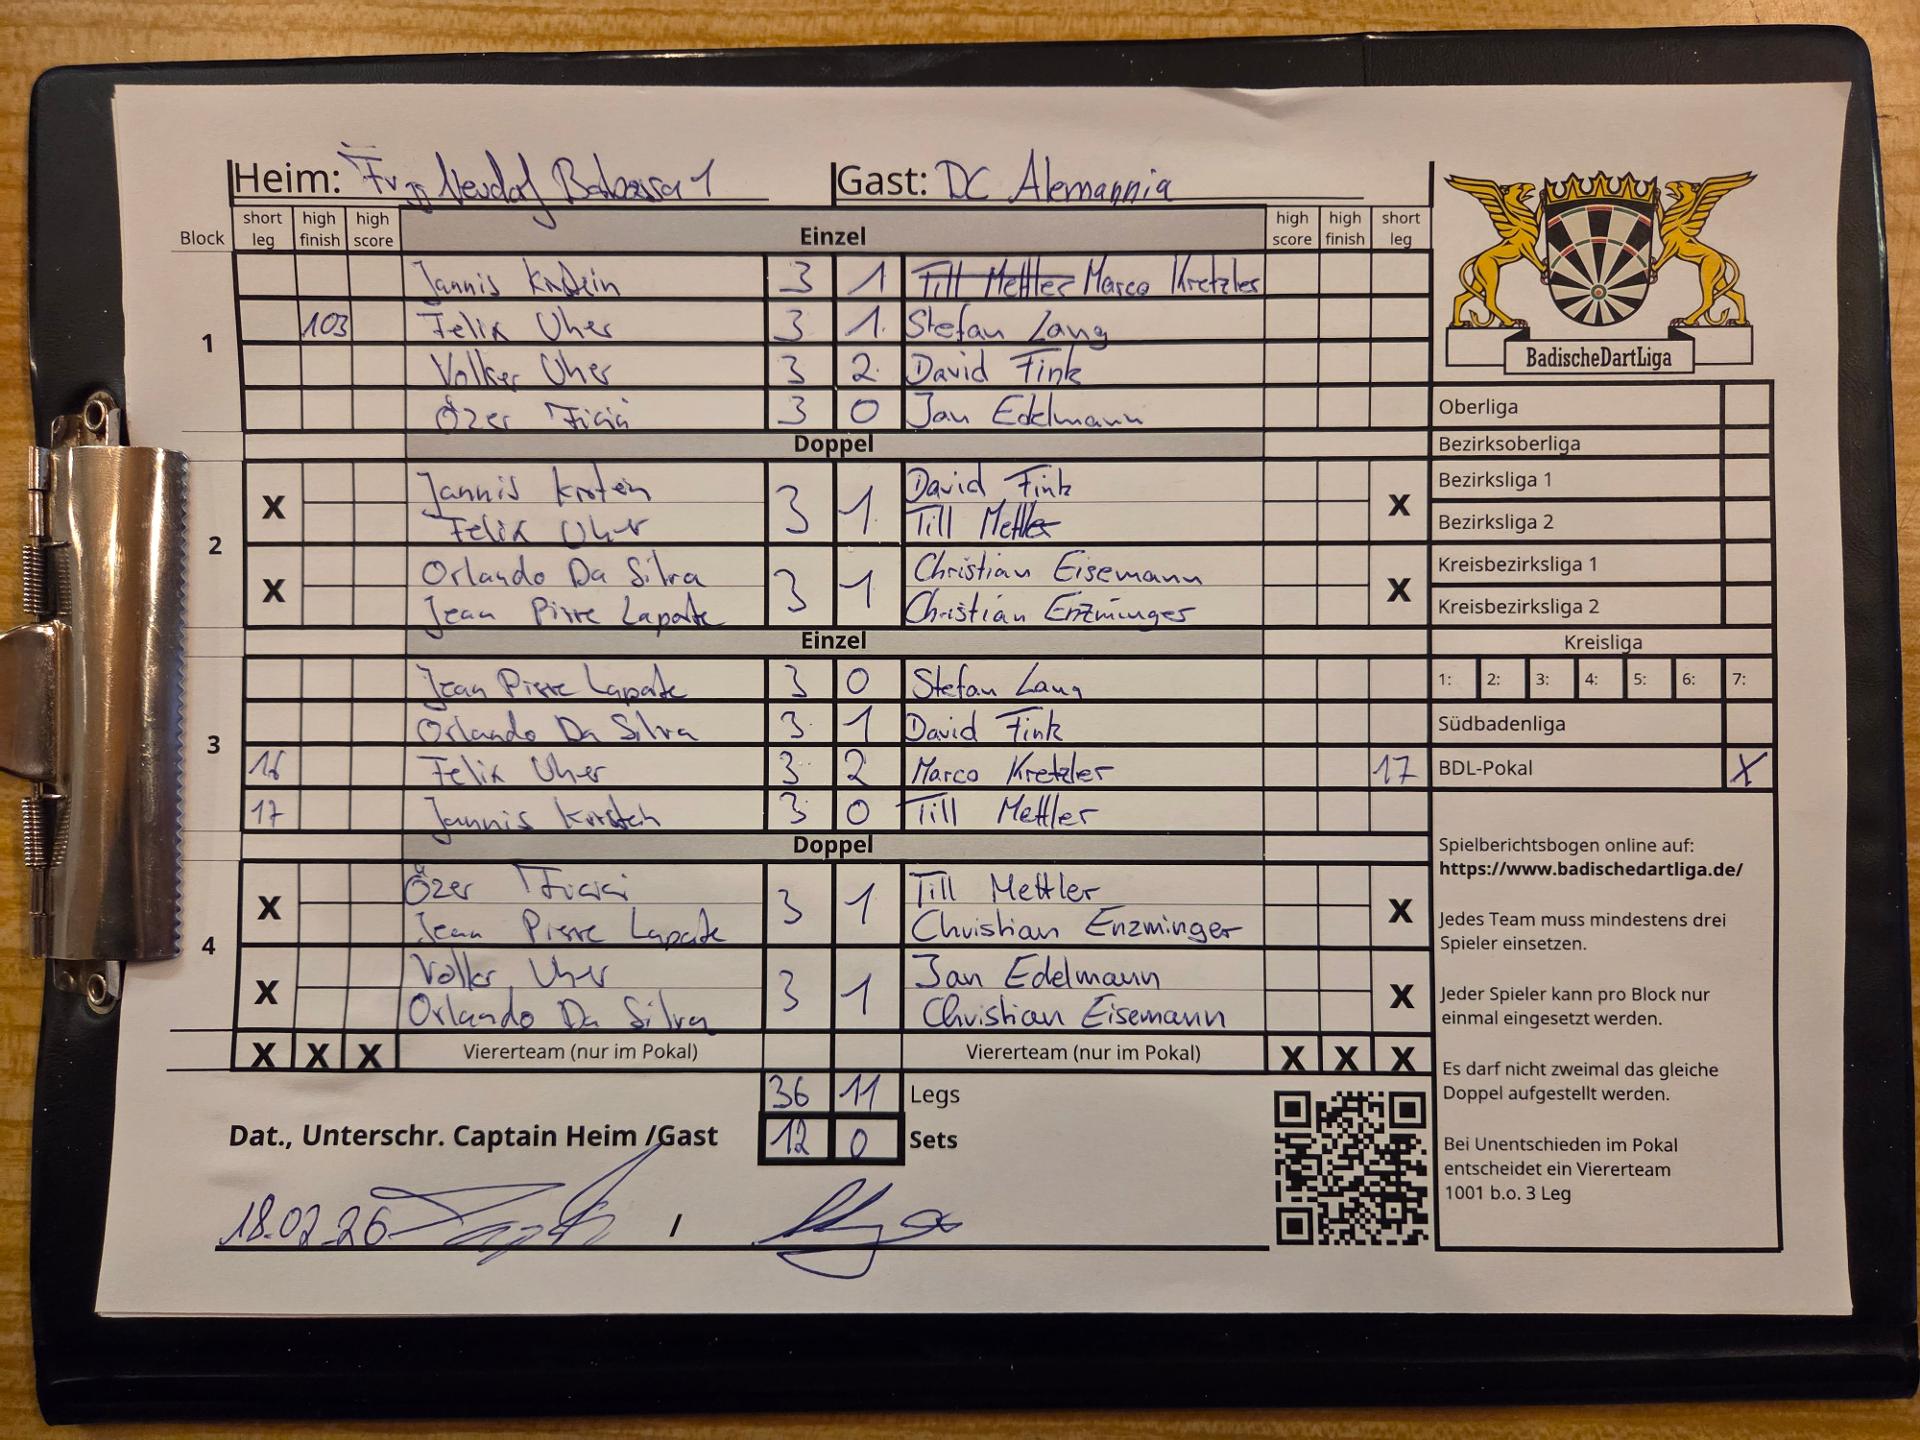 Heim: Gast: DC Alemannia
Block short leg high finish high score Einzel high score high finish short leg
1
Jannis 3 1 Till Mettler Marco Kretzler
103 Felix Uher 3 1 Stefan Lang
Volker Uher 3 2 David Fink
Özer 3 0 Jan Edelmann
Doppel
2
X Jannis 3 1 David Fink X
Felix Uher Till Mettler
X Orlando Da Silva 3 1 Christian Eisemann X
Jean Pirre Laporte Christian Enzminger
Einzel
3
Jean Pierre Laporte 3 0 Stefan Lang
Orlando Da Silva 3 1 David Fink
16 Felix Uher 3 2 Marco Kretzler 17
17 Jannis 3 0 Till Mettler
Doppel
4
X Özer 3 1 Till Mettler X
Jean Pierre Laporte Christian Enzminger
X Volker Uher 3 1 Jan Edelmann X
Orlando Da Silva Christian Eisemann
X X X Viererteam (nur im Pokal) Viererteam (nur im Pokal) X X X
36 11 Legs
Dat., Unterschr. Captain Heim /Gast 12 0 Sets
18.02.26 /
BadischeDartLiga
Oberliga
Bezirksoberliga
Bezirksliga 1
Bezirksliga 2
Kreisbezirksliga 1
Kreisbezirksliga 2
Kreisliga
1: 2: 3: 4: 5: 6: 7:
Südbadenliga
BDL-Pokal X
Spielberichtsbogen online auf:
https://www.badischedartliga.de/
Jedes Team muss mindestens drei
Spieler einsetzen.
Jeder Spieler kann pro Block nur
einmal eingesetzt werden.
Es darf nicht zweimal das gleiche
Doppel aufgestellt werden.
Bei Unentschieden im Pokal
entscheidet ein Viererteam
1001 b.o. 3 Leg